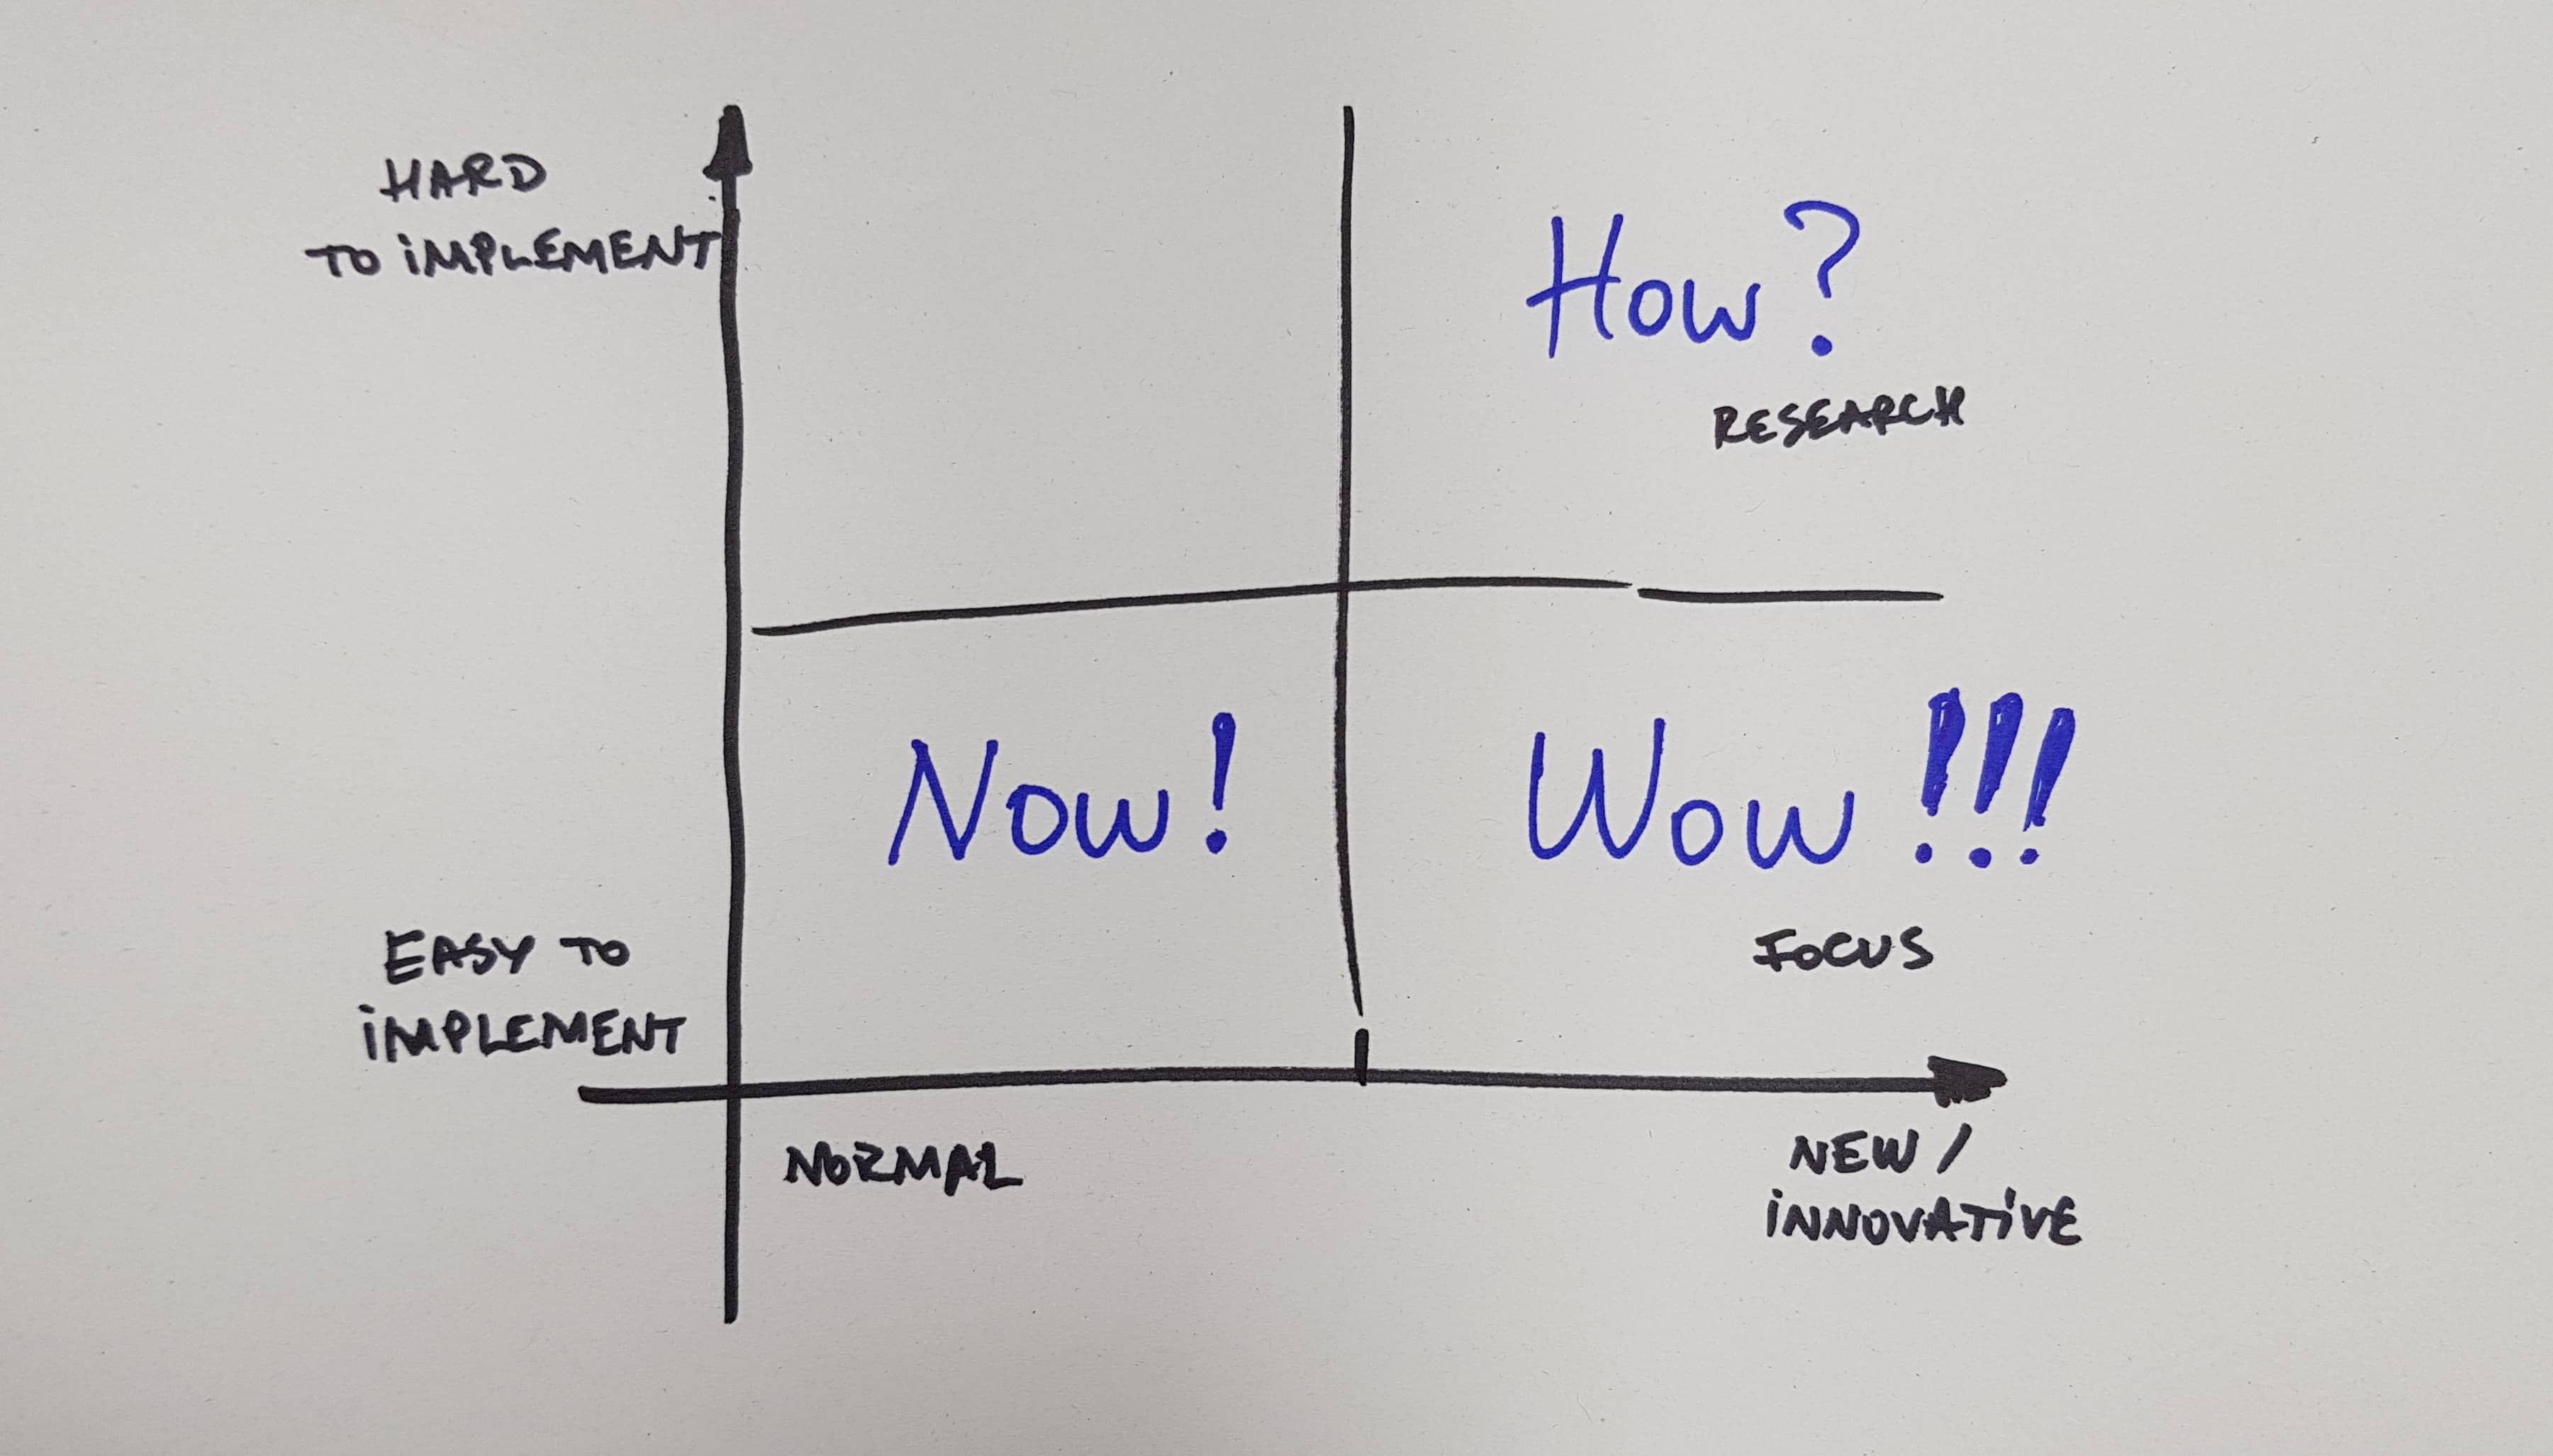 HARD
TO iMPLEMENT
How?
RESEARCH
Now!
Wow!!!
EASY TO
iMPLEMENT
FOCUS
NORMAL
NEW /
iNNOVATiVE